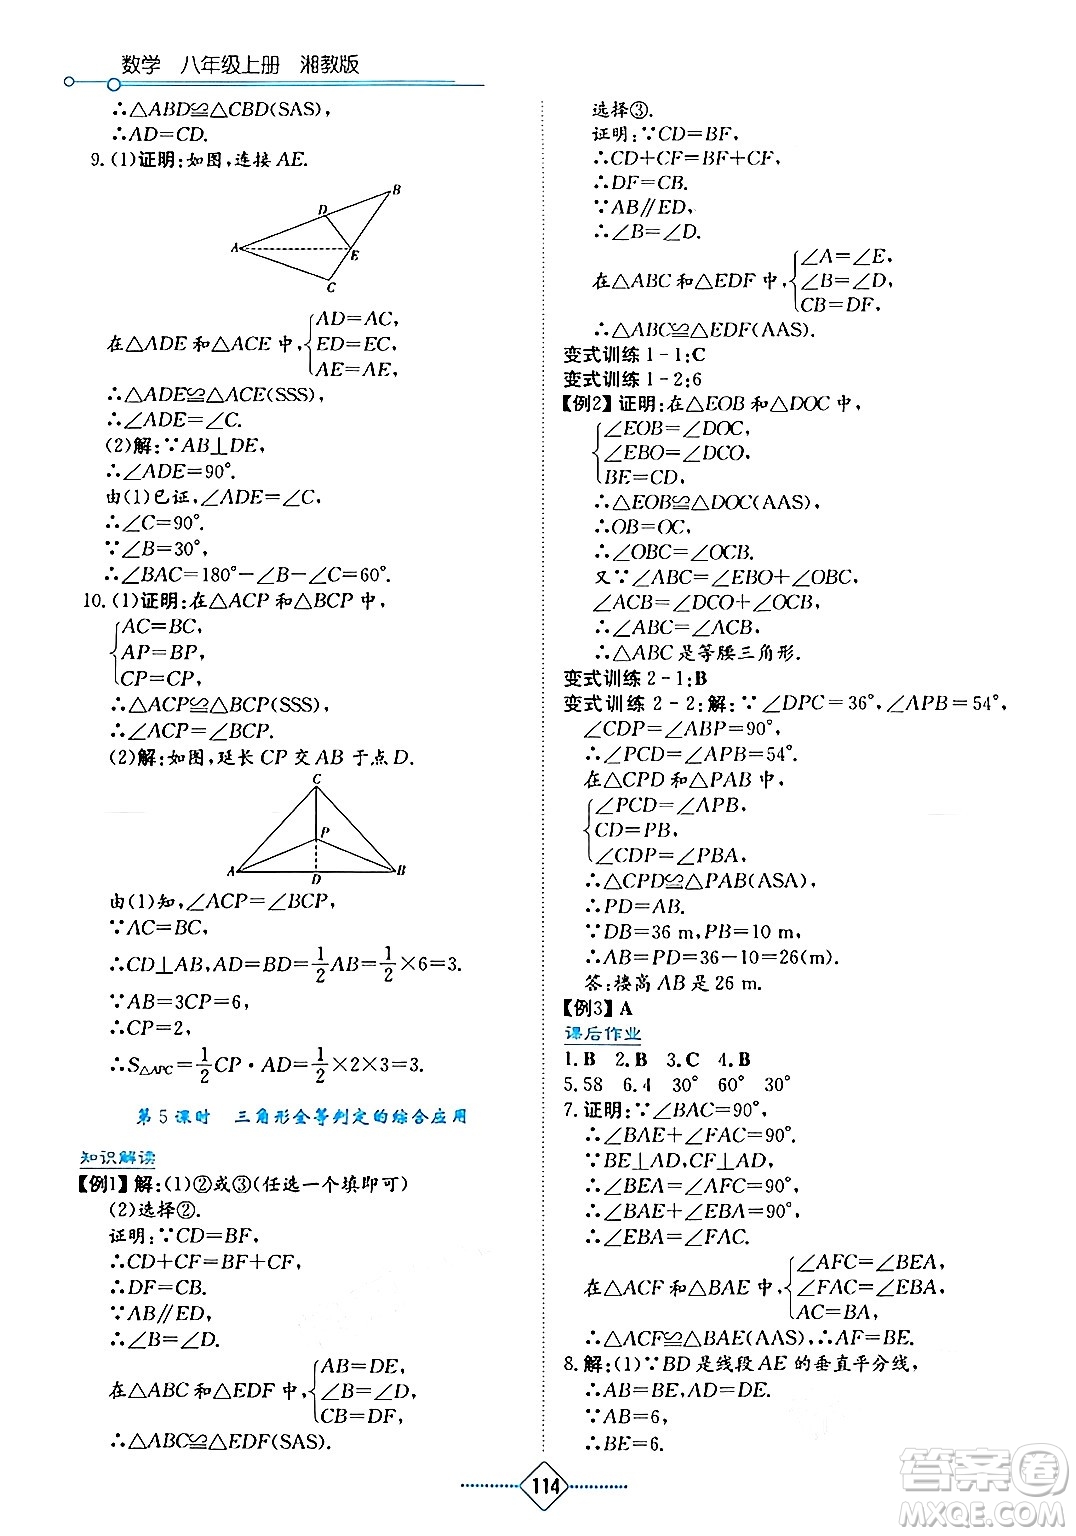 数学 八年级上册 湘教版
∴△ABD≌△CBD(SAS),
∴AD=CD.
9.(1)证明:如图,连接 AE.
B
D
A
E
C
在△ADE 和△ACE 中,{AD=AC,
ED=EC,
AE=AE,
∴△ADE≌△ACE(SSS),
∴∠ADE=∠C.
(2)解:∵AB⊥DE,
∴∠ADE=90°.
由(1)已证,∠ADE=∠C,
∴∠C=90°.
∵∠B=30°,
∴∠BAC=180°-∠B-∠C=60°.
10.(1)证明:在△ACP 和△BCP 中,
{AC=BC,
AP=BP,
CP=CP,
∴△ACP≌△BCP(SSS),
∴∠ACP=∠BCP.
(2)解:如图,延长 CP 交 AB 于点 D.
C
P
A D B
由(1)知,∠ACP=∠BCP,
∵AC=BC,
∴CD⊥AB,AD=BD=1/2AB=1/2×6=3.
∵AB=3CP=6,
∴CP=2,
∴S△APC=1/2CP·AD=1/2×2×3=3.
第 5 课时 三角形全等判定的综合应用
知识解读
【例1】解:(1)②或③(任选一个填即可)
(2)选择②.
证明:∵CD=BF,
∴CD+CF=BF+CF,
∴DF=CB.
∵AB∥ED,
∴∠B=∠D.
在△ABC 和△EDF 中,{AB=DE,
∠B=∠D,
CB=DF,
∴△ABC≌△EDF(SAS).
选择③.
证明:∵CD=BF,
∴CD+CF=BF+CF,
∴DF=CB.
∵AB∥ED,
∴∠B=∠D.
在△ABC 和△EDF 中,{∠A=∠E,
∠B=∠D,
CB=DF,
∴△ABC≌△EDF(AAS).
变式训练 1-1:C
变式训练 1-2:6
【例2】证明:在△EOB 和△DOC 中,
{∠EOB=∠DOC,
∠EBO=∠DCO,
BE=CD,
∴△EOB≌△DOC(AAS),
∴OB=OC,
∴∠OBC=∠OCB.
又∵∠ABC=∠EBO+∠OBC,
∠ACB=∠DCO+∠OCB,
∴∠ABC=∠ACB,
∴△ABC 是等腰三角形.
变式训练 2-1:B
变式训练 2-2:解:∵∠DPC=36°,∠APB=54°,
∠CDP=∠ABP=90°,
∴∠PCD=∠APB=54°.
在△CPD 和△PAB 中,
{∠PCD=∠APB,
CD=PB,
∠CDP=∠PBA,
∴△CPD≌△PAB(ASA),
∴PD=AB.
∵DB=36 m,PB=10 m,
∴AB=PD=36-10=26(m).
答:楼高 AB 是 26 m.
【例3】A
课后作业
1.B 2.B 3.C 4.B
5.58 6.4 30° 60° 30°
7.证明:∵∠BAC=90°,
∴∠BAE+∠FAC=90°.
∵BE⊥AD,CF⊥AD,
∴∠BEA=∠AFC=90°,
∴∠BAE+∠EBA=90°,
∴∠EBA=∠FAC.
在△ACF 和△BAE 中,{∠AFC=∠BEA,
∠FAC=∠EBA,
AC=BA,
∴△ACF≌△BAE(AAS),∴AF=BE.
8.解:(1)∵BD 是线段 AE 的垂直平分线,
∴AB=BE,AD=DE.
∵AB=6,
∴BE=6.
114
答案圈
MXQE.COM